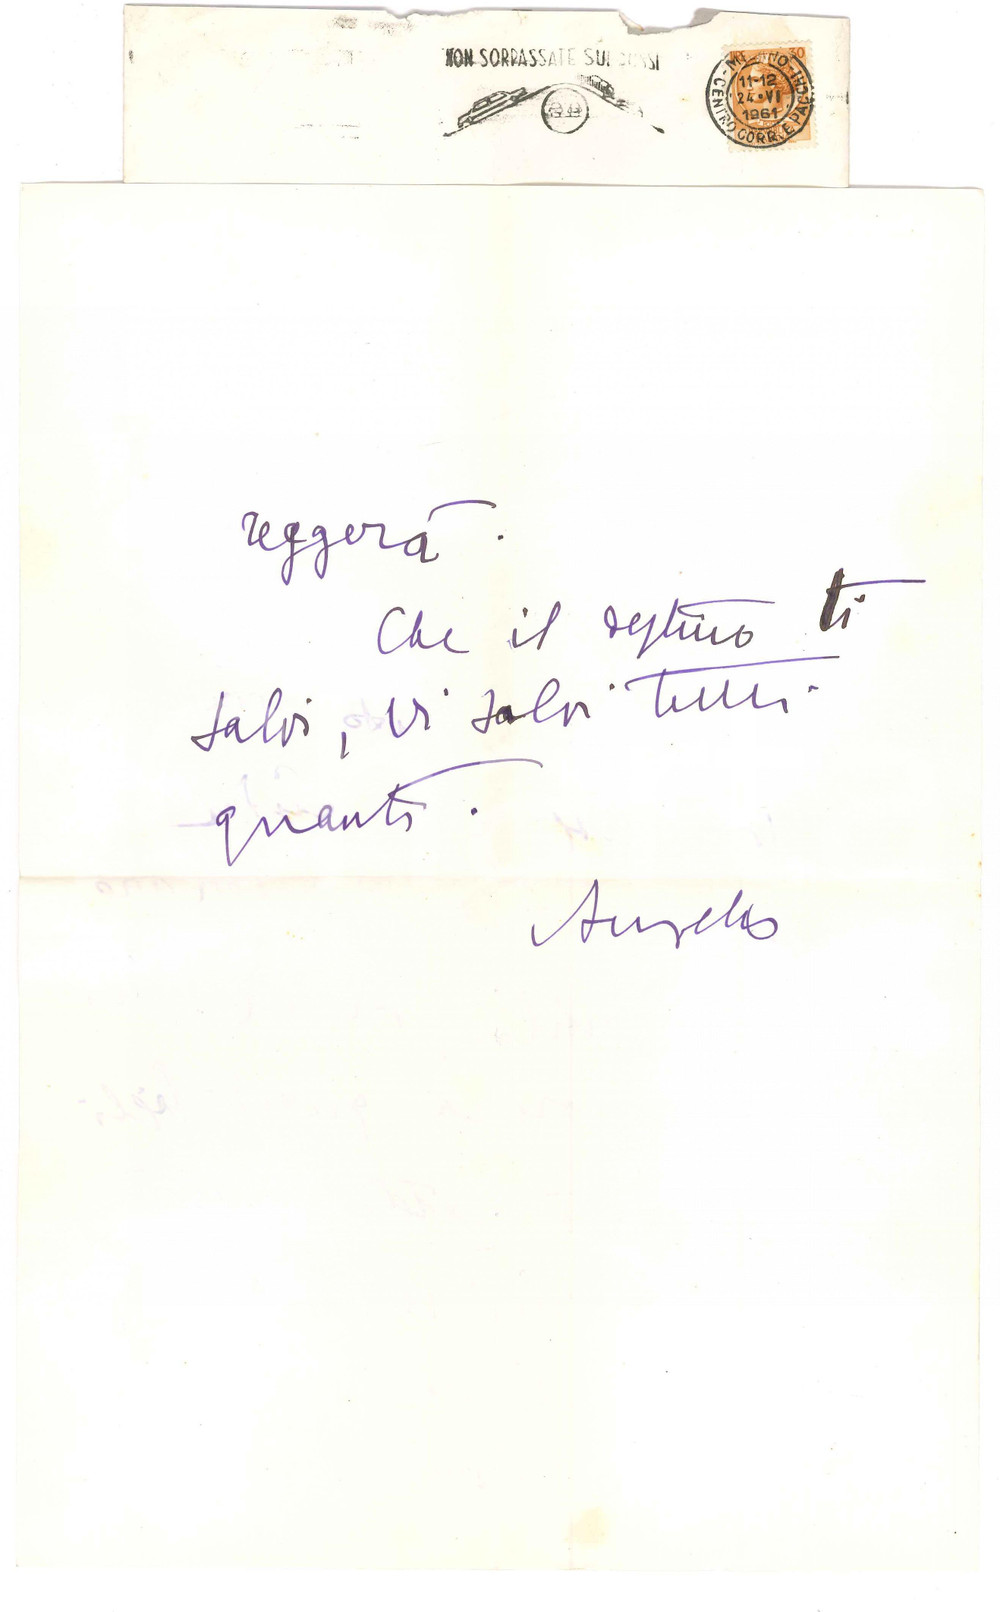 NON SORPASSATE SUI DOSSI
30
MILANO
11-12
24·VI
1961
CENTRO CORR. E PACCHI
reggerà.
Che il destino ti
salvi, vi salvi tutti
quanti.
Angelo